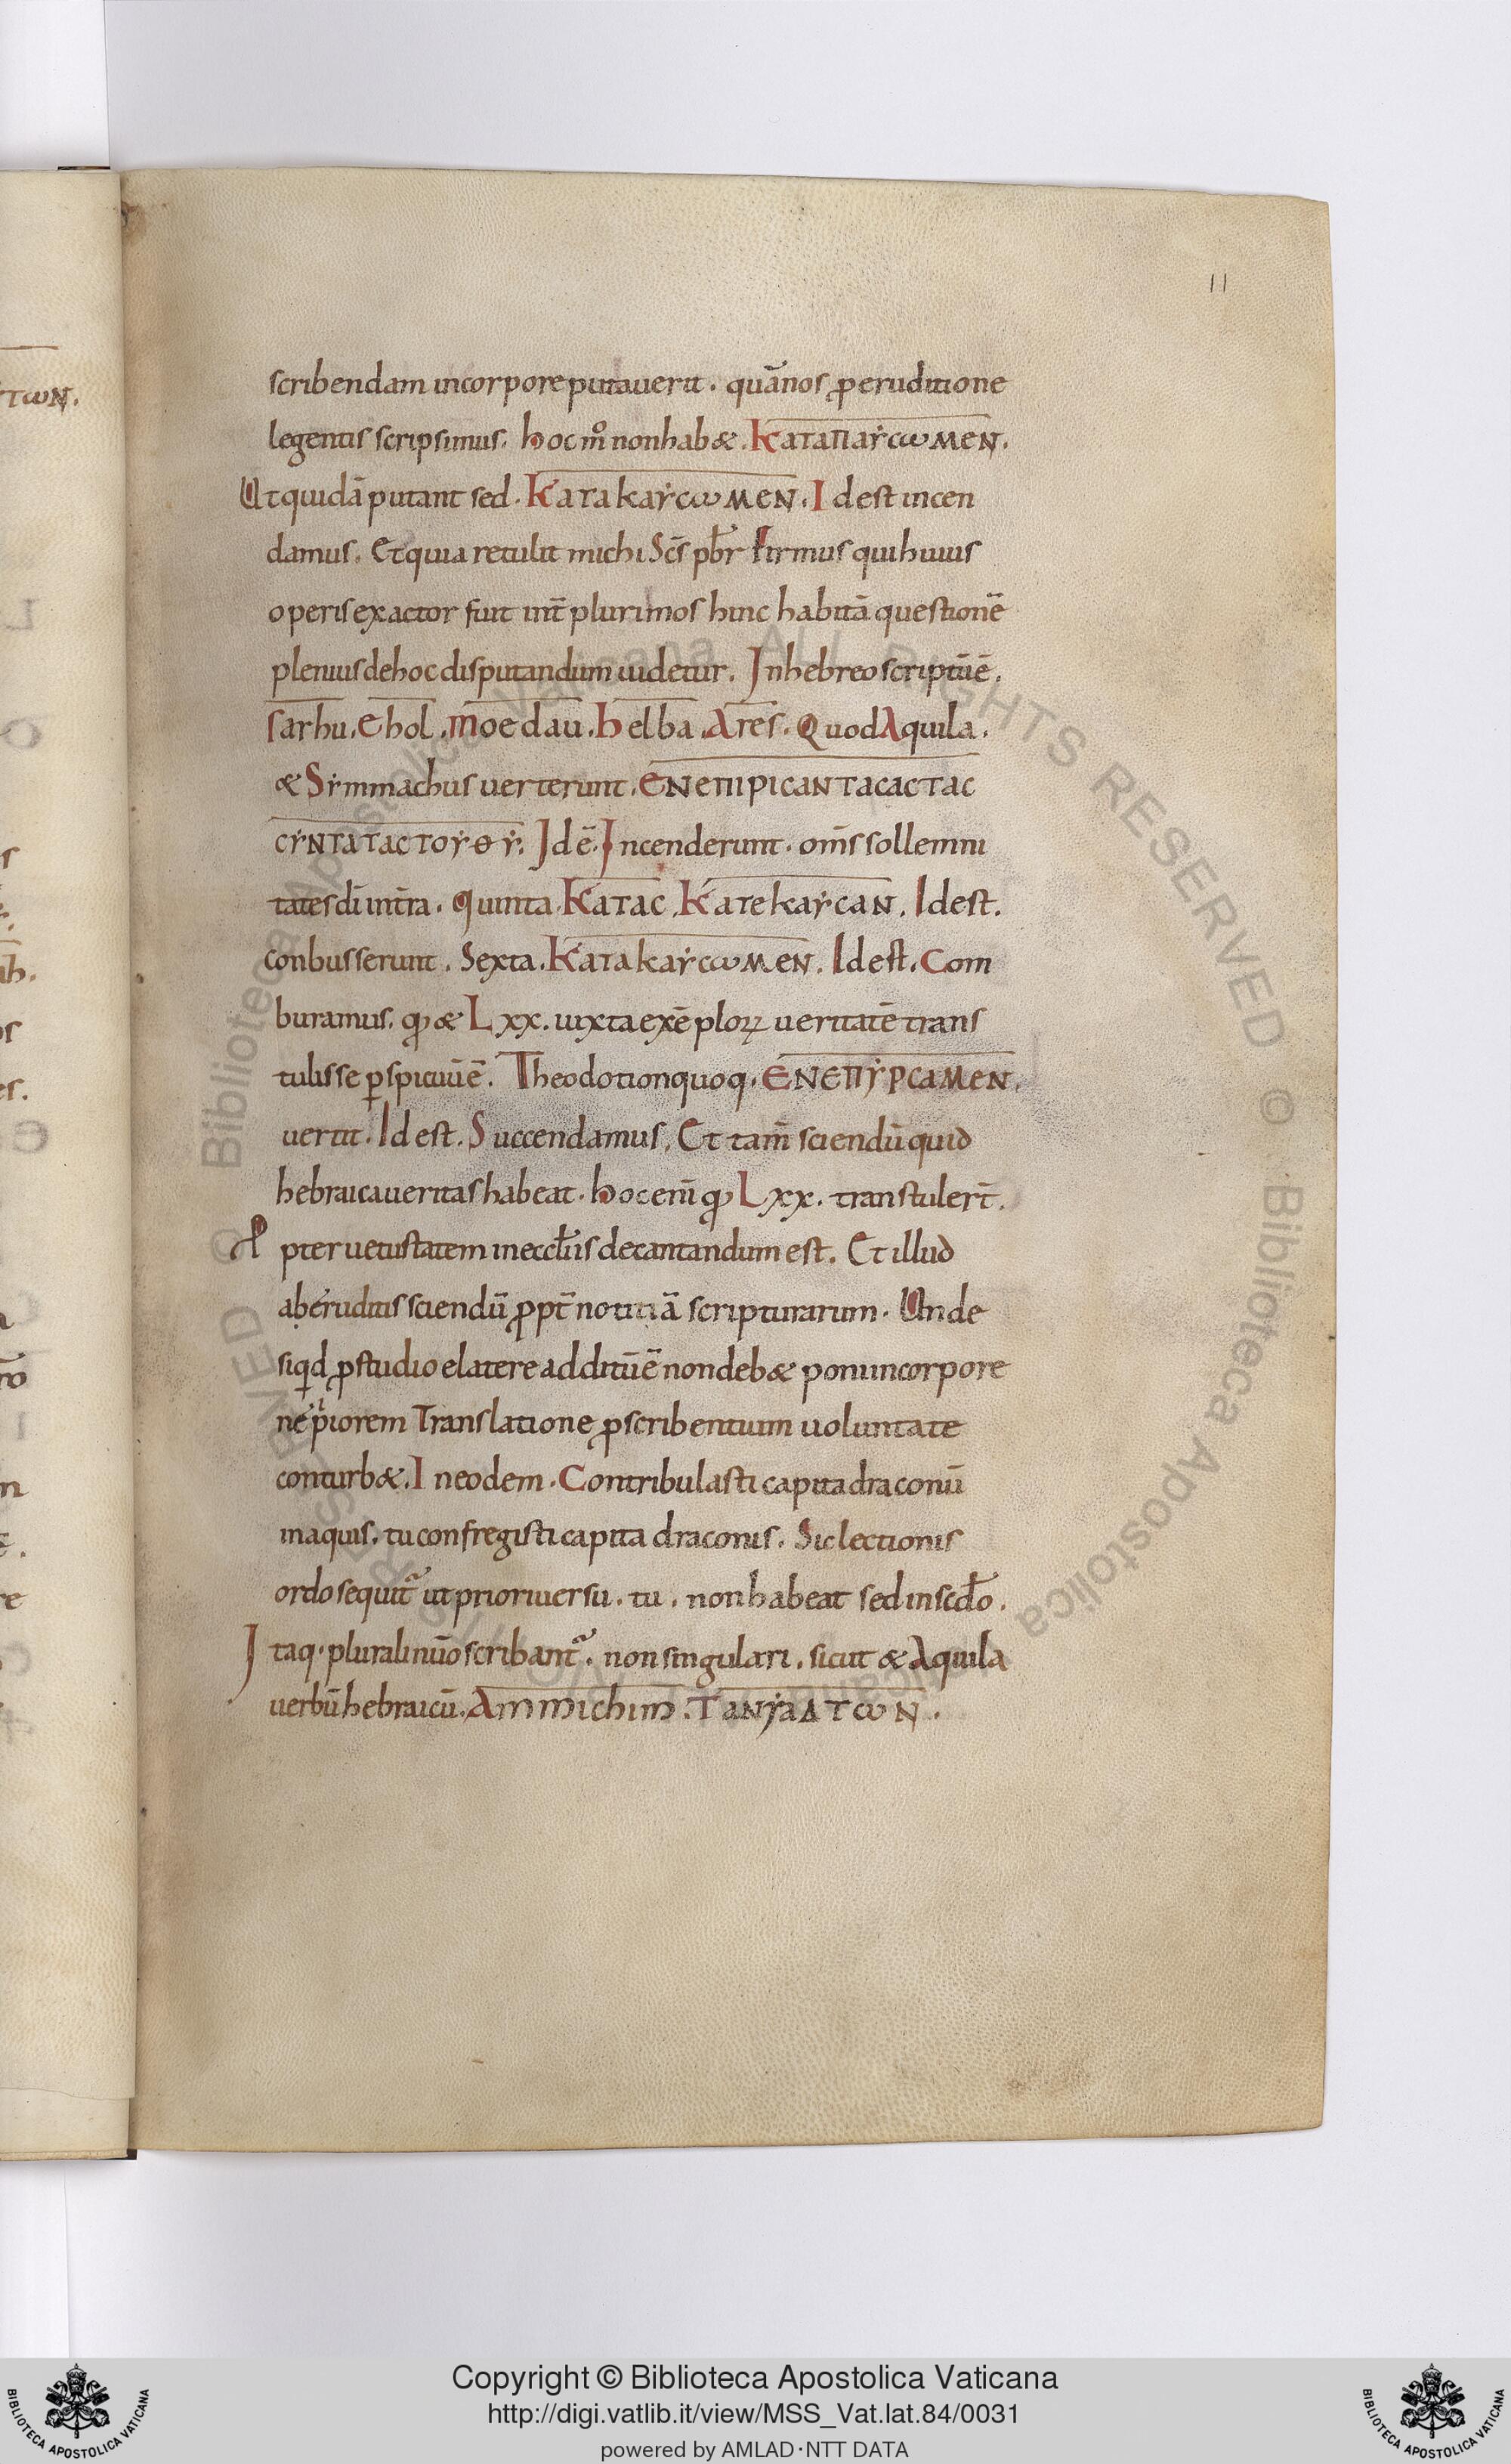 11
scribendam incorpore putauerit. quā nos ꝓ eruditione
legentis scripsimus. hoc m̊ non habæ. KATAΠAYCωMEN.
Ut quidā putant sed. KATAKAYCωMEN. Id est incen
damus. Et quia retulit michi Scs̄ pbr̄ firmus qui huius
operis exactor fuit int̄ plurimos hinc habitā questionē
plenius de hoc disputandum uidetur. In hebreo scriptū ē.
sarhu. Chol. moedau. helba. Ares. Quod Aquila.
& Symmachus uerterunt. ENEΠIPICAN TACACTAC
CYNTATACTOYΘY. Id ē. Incenderunt. om̄s sollemni
tates dī in tr̄a. quinta KATAC. KATEKAYCAN. Id est.
conbusserunt. Sexta. KATAKAYCωMEN. Id est. Com
buramus. qđ & Lxx. iuxta exēploꝝ ueritatē trans
tulisse ꝑspicuū ē. Theodotion quoq. ENEΠYPCAMEN.
uertit. Id est. Succendamus. Et tam̄ sciendū quid
hebraica ueritas habeat. hoc enī qđ Lxx. transtuler̄t.
Ꝓpter uetustatem in eccl̄iis decantandum est. Et illud
ab eruditis sciendū ꝓpt̄ notitiā scripturarum. Unde
siqd ꝓ studio e latere additū ē non debæ poni in corpore
ne piorem Translatione ꝓ scribentium uoluntate
conturbæ. In eodem. Contribulasti capita draconū
in aquis. tu confregisti capita draconis. Sic lectionis
ordo sequit̃ ut priori uersu. tu. non habeat sed in scdo.
Itaq. plurali nūo scribant̃. non singulari. sicut & Aquila
uerbū hebraicū. Ammichim. TANYAΔTωN.
TωN.
Copyright © Biblioteca Apostolica Vaticana
http://digi.vatlib.it/view/MSS_Vat.lat.84/0031
powered by AMLAD·NTT DATA
BIBLIOTECA APOSTOLICA VATICANA
BIBLIOTECA APOSTOLICA VATICANA